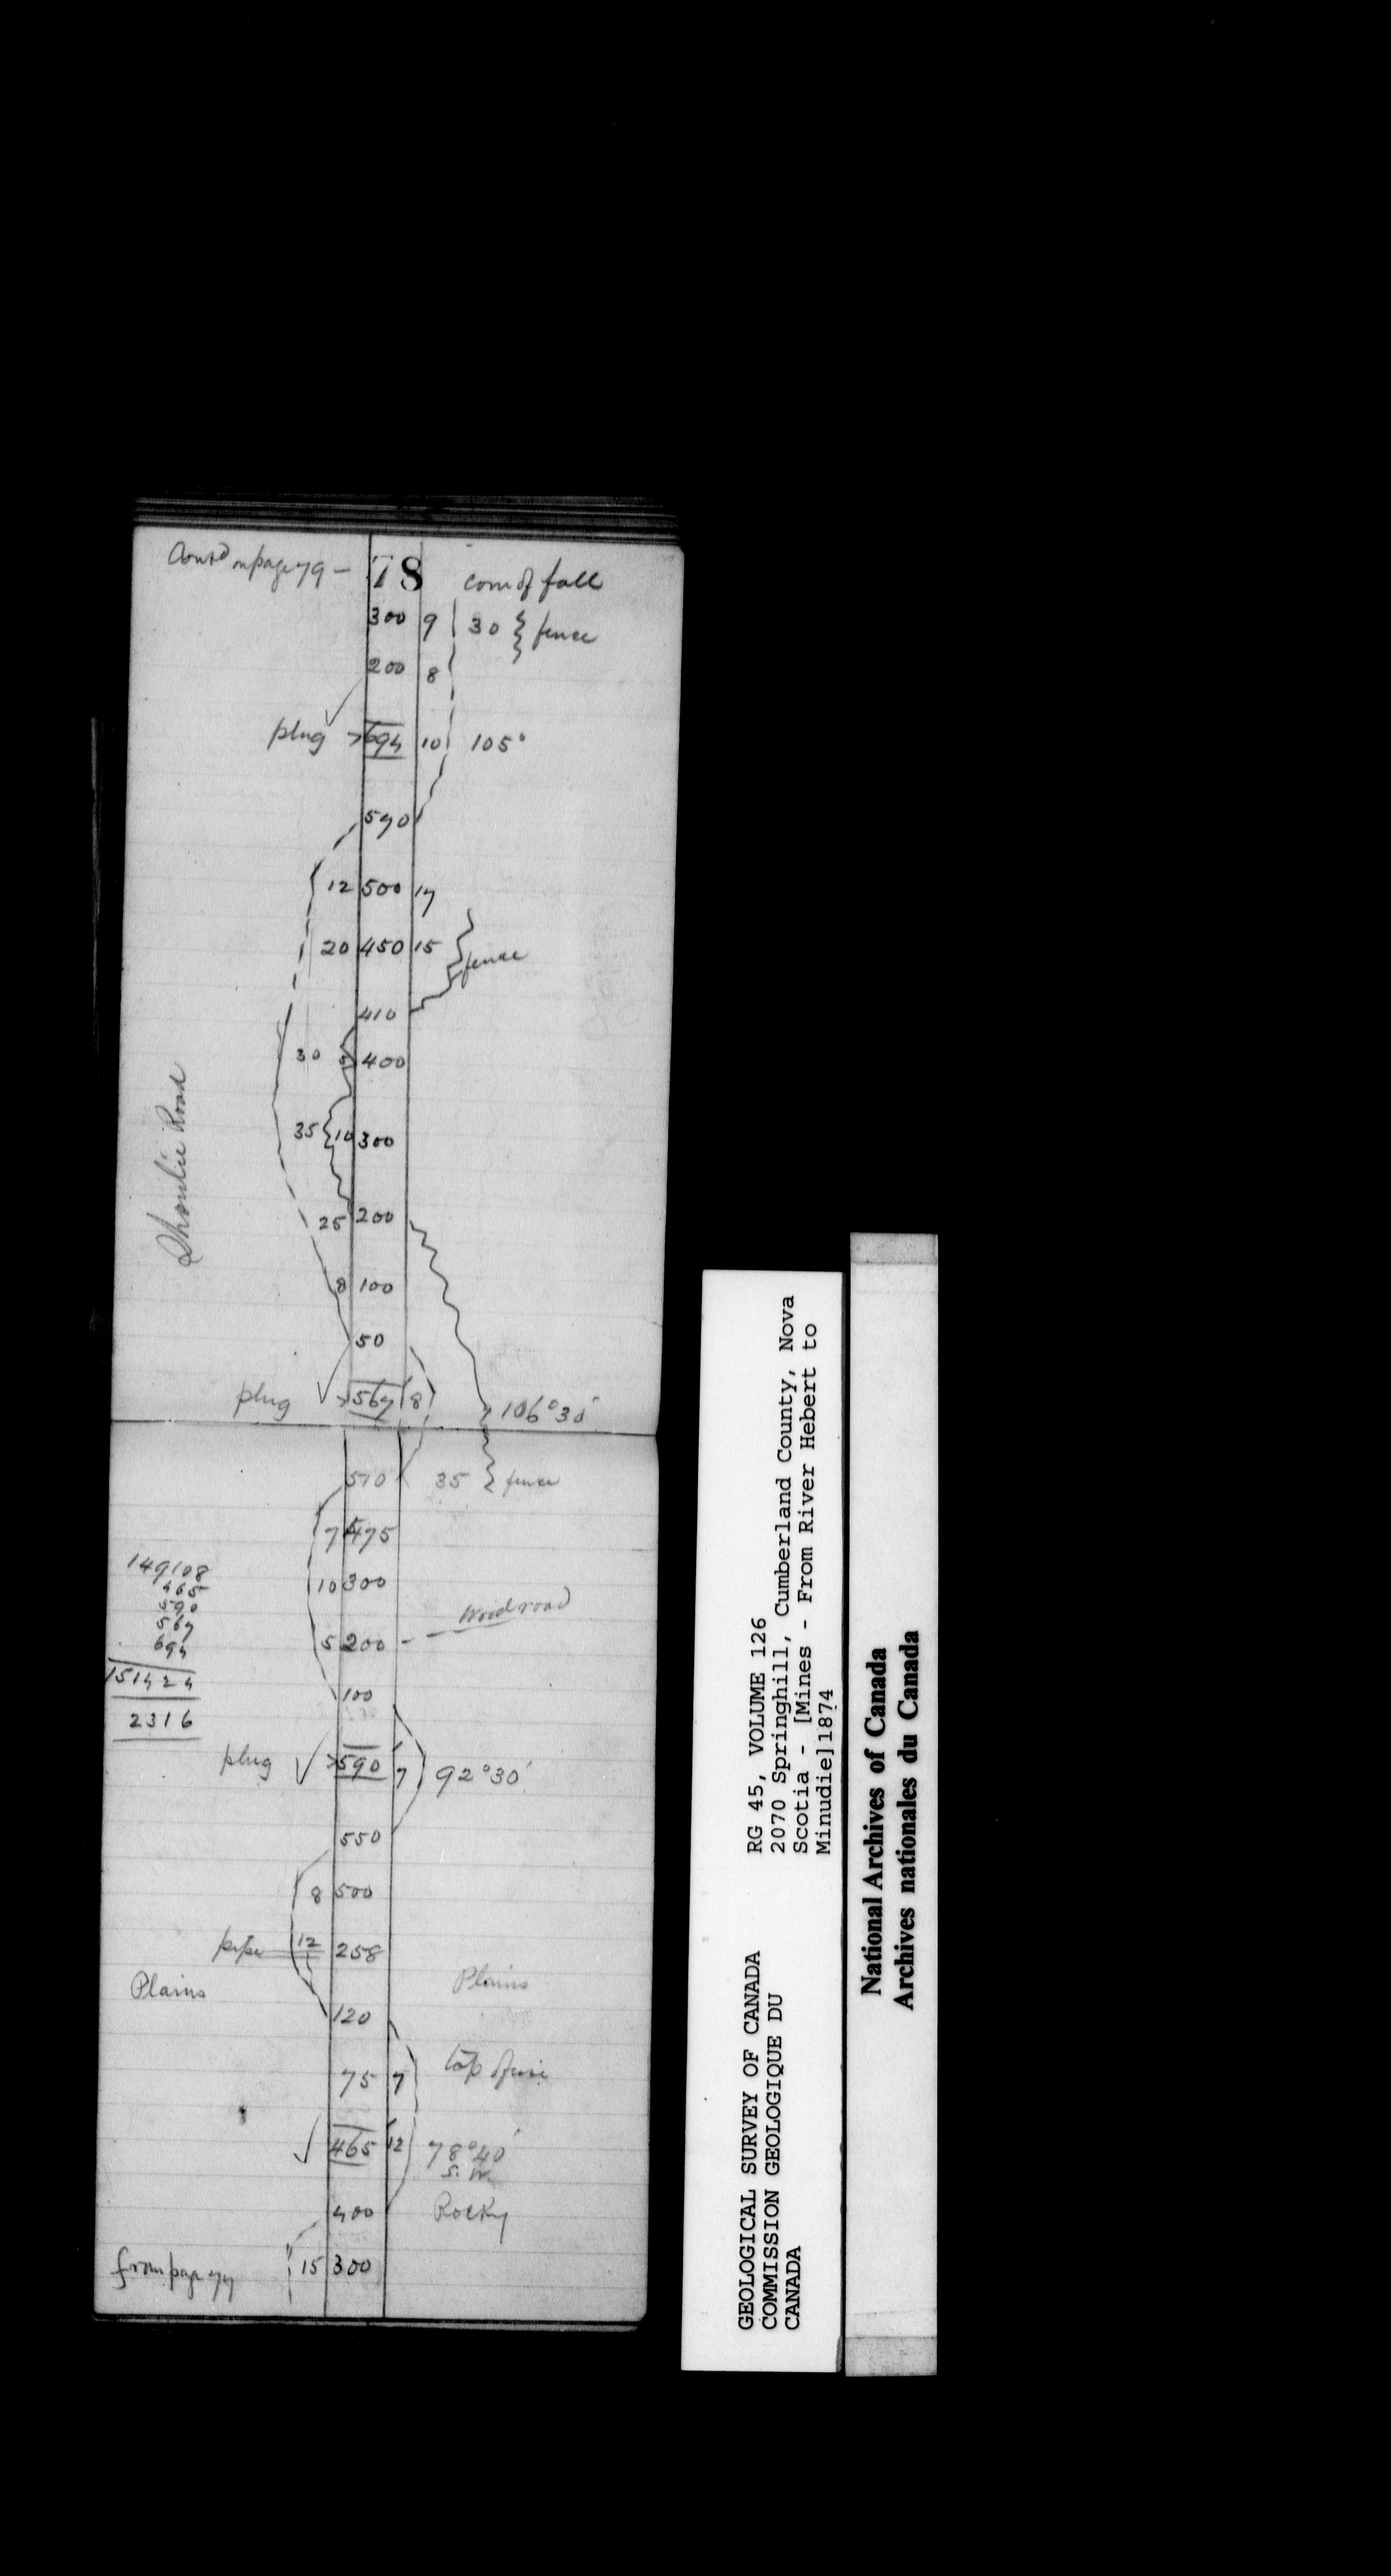 Contd on page 79 – 78 com of fall
300 9 30 fence
200 8
plug 694 10 105°
570
12 500 17
20 450 15 fence
410
30 9 400
35 10 300
Shoulie Road
25 200
8 100
50
plug 567 8 106°30'
510 35 fence
7 475
10 300
Wood road
5 200
100
149108
465
590
567
694
151424
2316
plug 590 7 92°30'
550
8 500
pipe 12 258
Plains Plains
120
75 7 top of
465 12 78°40'
S. W.
400 Rocky
from page 77 15 300
GEOLOGICAL SURVEY OF CANADA
COMMISSION GEOLOGIQUE DU
CANADA
RG 45, VOLUME 126
2070 Springhill, Cumberland County, Nova
Scotia - [Mines - From River Hebert to
Minudie]1874
National Archives of Canada
Archives nationales du Canada